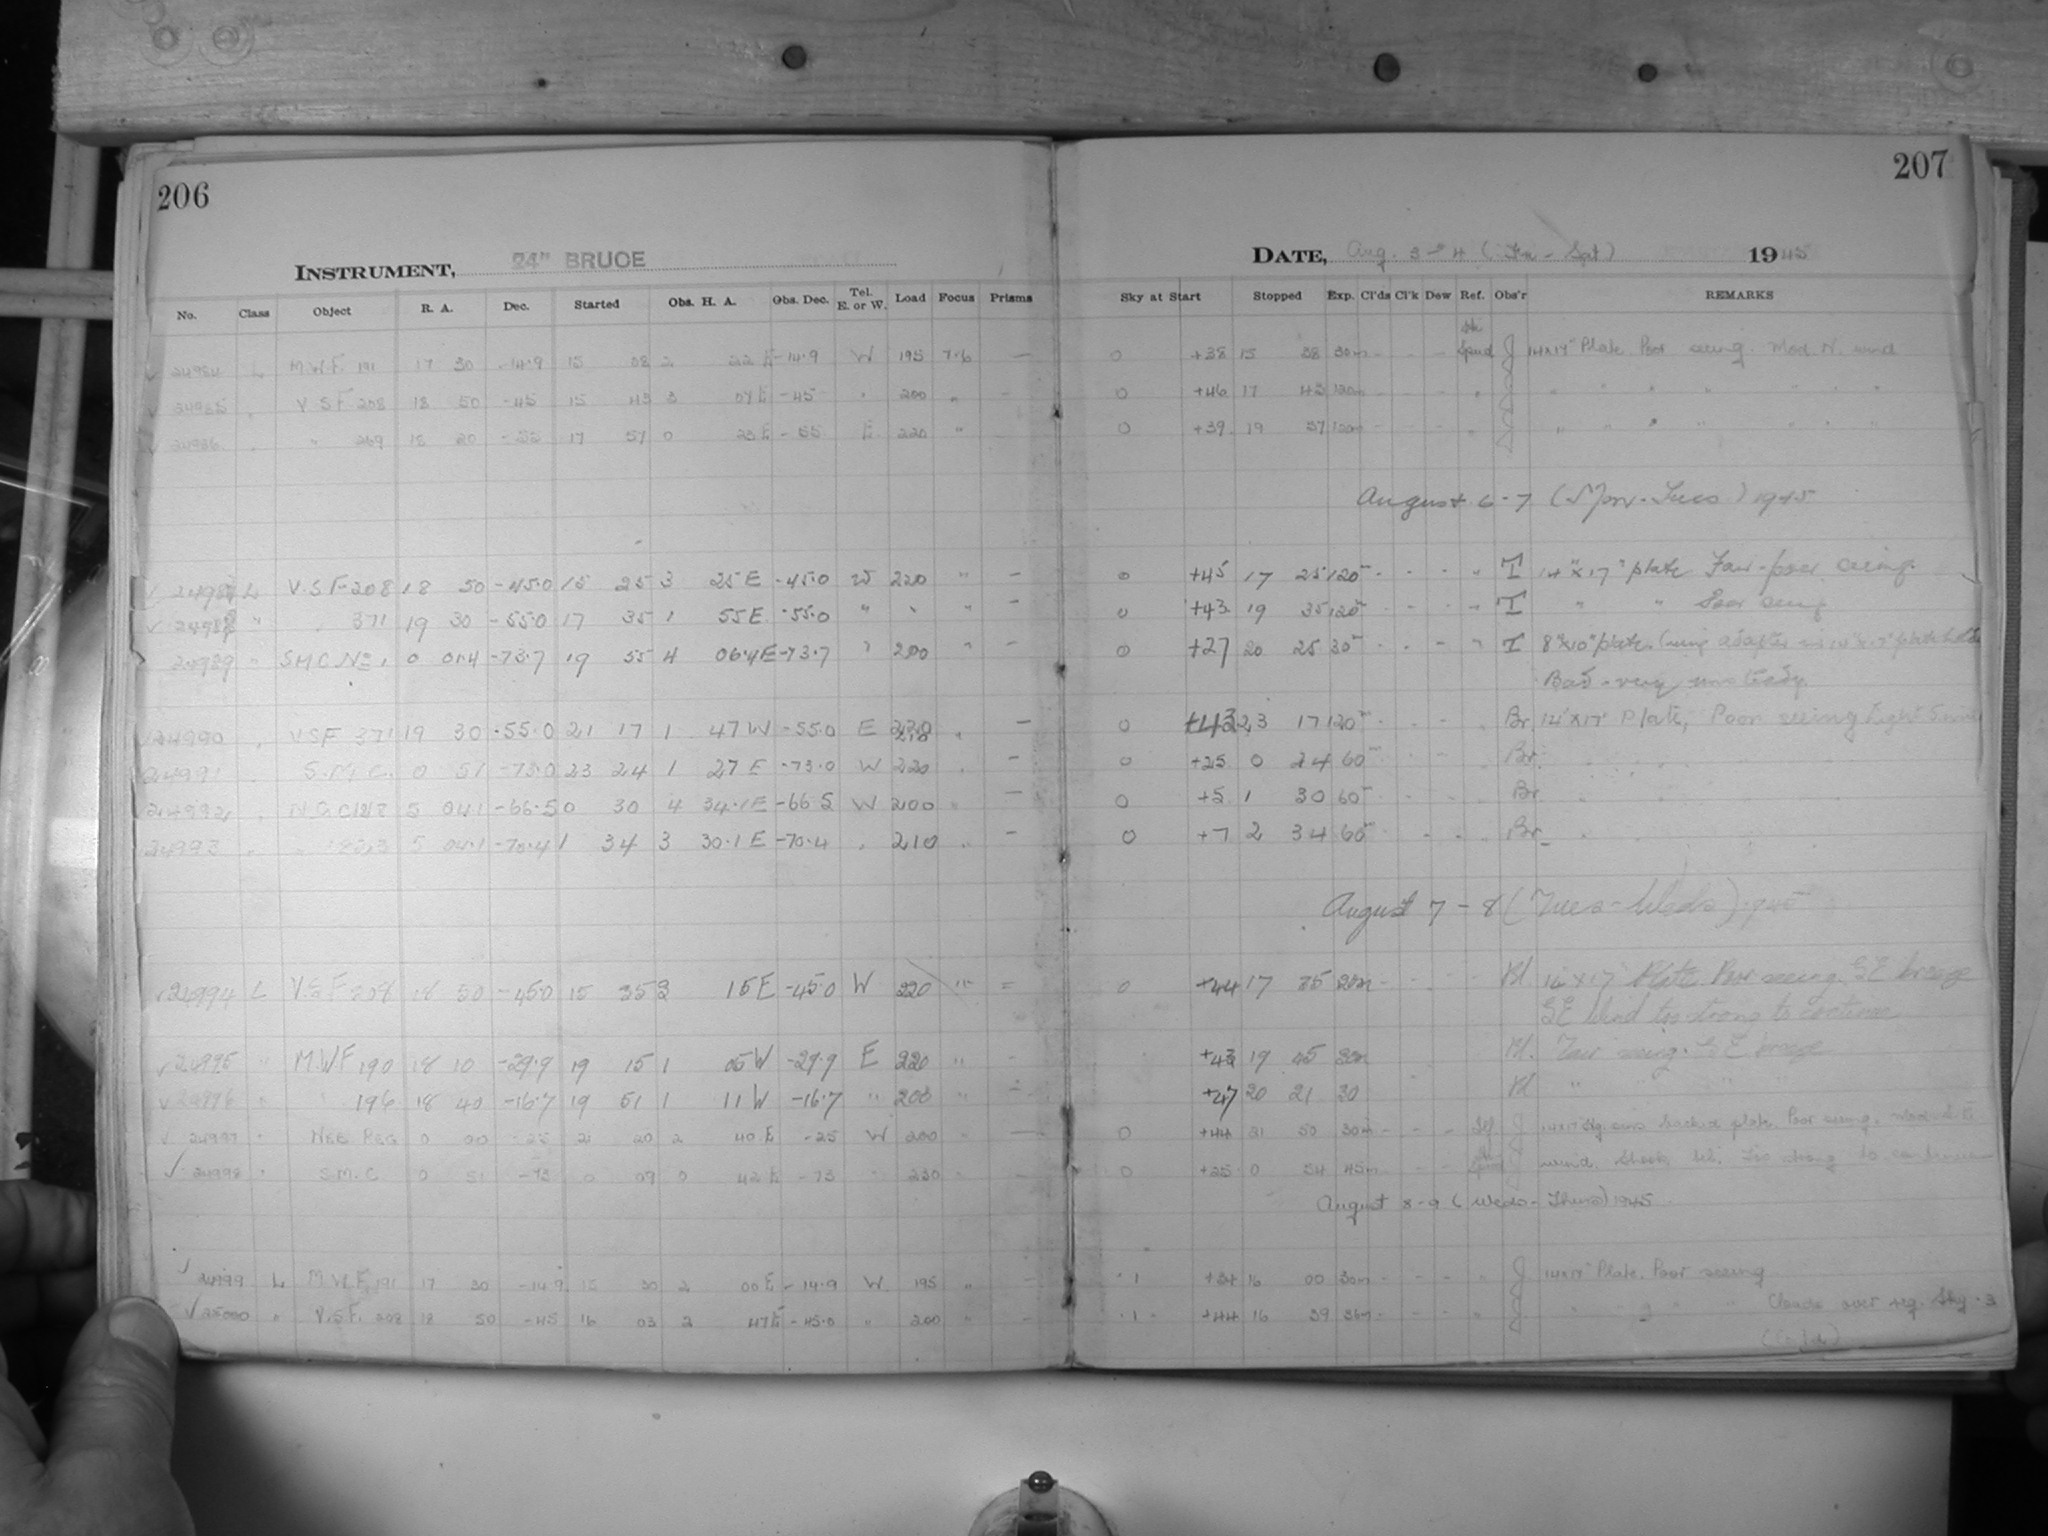 206
207
INSTRUMENT, 24" BRUCE
DATE, Aug. 3-4 (Fri - Sat) 1945
No. Class Object R. A. Dec. Started Obs. H. A. Obs. Dec. Tel. E. or W. Load Focus Prisms Sky at Start Stopped Exp. Cl'ds Cl'k Dew Ref. Obs'r REMARKS
✓ 24984 L M.W.F. 191 17 30 -14.9 15 08 2 22 E -14.9 W 195 7.6 — 0 +38 15 38 30m - - - J 14x17" Plate. Poor seeing. Mod. N. wind
✓ 24985 " V.S.F. 208 18 50 -45 15 43 3 07 E -45 " 200 " - 0 +46 17 43 120m - - - " J " " " " " " "
✓ 24986 " " 269 18 20 -55 17 57 0 23 E -55 E 220 " 0 +39 19 57 120m - - - " J " " " " " " "
August 6-7 (Mon-Tues) 1945
✓ 24987 L V.S.F. 208 18 50 -45.0 15 25 3 25 E -45.0 W 220 " - 0 +45 17 25 120m - - - " T 14"x17" plate Fair-poor seeing.
✓ 24988 " " 371 19 30 -55.0 17 35 1 55 E -55.0 " " " - 0 +43 19 35 120m - - - " T " " Poor seeing
24989 " S.M.C. NE 0 01.4 -73.7 19 55 4 06.4 E -73.7 " 200 " - 0 +27 20 25 30m - - - " T 8"x10" plate (using adapter in 14"x17" plateholder
Bad - very unsteady
✓ 24990 " V.S.F. 371 19 30 -55.0 21 17 1 47 W -55.0 E 210 " - 0 +43 23 17 120m - - " Br. 14"x17" Plate, Poor seeing light
24991 " S.M.C. 0 51 -73.0 23 24 1 27 E -73.0 W 220 " - 0 +25 0 24 60m - - " Br. " "
24992 " N.G.C. 5 04.1 -66.5 0 30 4 34.1 E -66.5 W 200 " - 0 +5 1 30 60m - - " Br. " "
24993 " " 5 04.1 -70.4 1 34 3 30.1 E -70.4 " 210 " - 0 +7 2 34 60m - - " Br. " "
August 7-8 (Tues-Weds) 1945
✓ 24994 L V.S.F. 208 18 50 -45.0 15 35 3 15 E -45.0 W 220 " = 0 +44 17 35 - - - 14"x17" Plate. Poor seeing. SE breeze
SE wind too strong to continue
✓ 24995 " M.W.F. 190 18 10 -29.9 19 15 1 05 W -29.9 E 220 " - +43 19 45 30m Fair seeing. SE breeze
✓ 24996 " " 196 18 40 -16.7 19 51 1 11 W -16.7 " 200 " - +47 20 21 30 " " " "
✓ 24997 " 0 00 -25 21 20 2 40 E -25 W 200 " - 0 +44 21 50 30m - - - J plate. Poor seeing.
✓ 24998 " S.M.C. 0 51 -73 0 09 0 42 E -73 " 230 " - 0 +25 0 54 45m - - - J wind. Too strong to continue
August 8-9 (Weds-Thurs) 1945
✓ 24999 L M.W.F. 191 17 30 -14.9 15 30 2 00 E -14.9 W 195 " - .1 +34 16 00 30m - - - " J 14x17" Plate. Poor seeing
✓ 25000 " V.S.F. 208 18 50 -45 16 03 2 47 E -45.0 " 200 " - .1 +44 16 39 36m - - - " J " " " " Clouds over reg. Sky .3